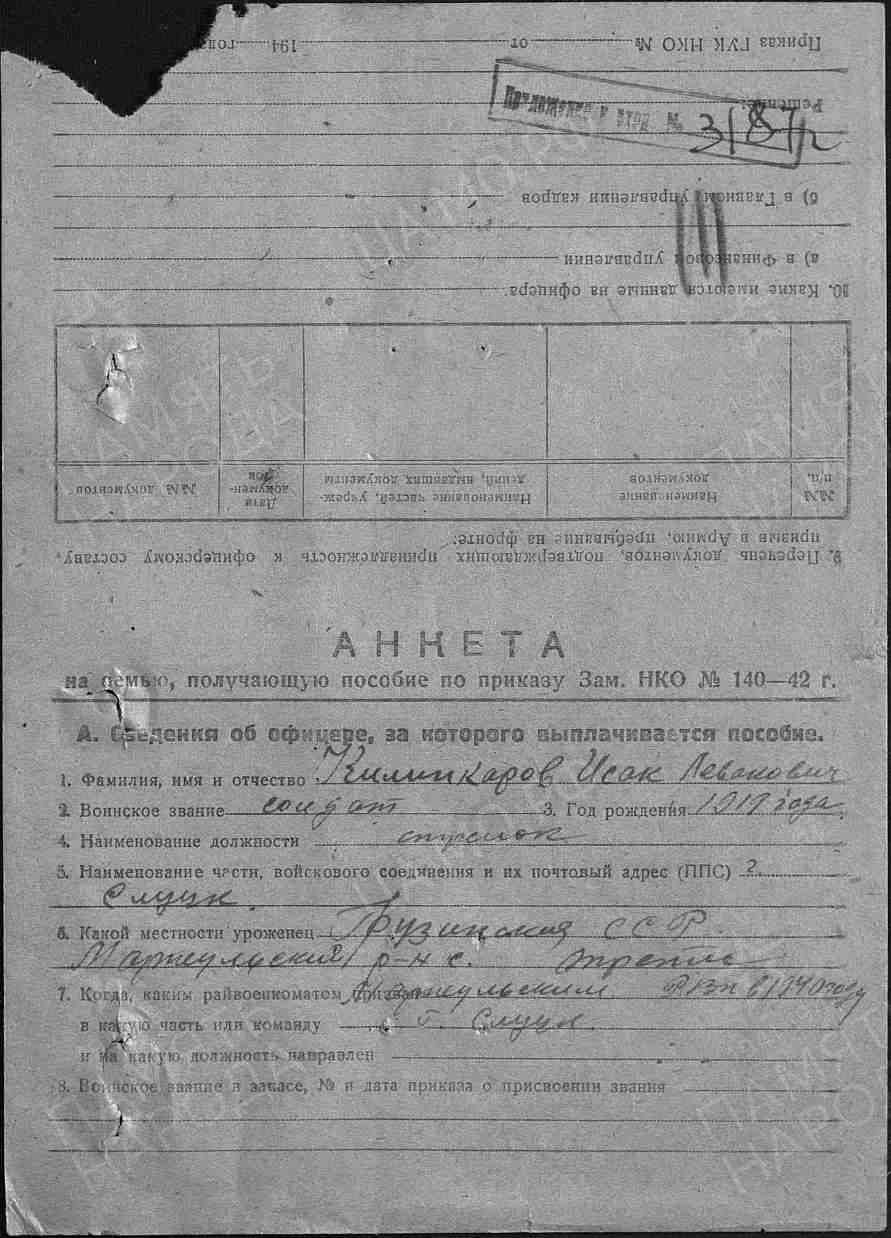 АНКЕТА
на семью, получающую пособие по приказу Зам. НКО № 140—42 г.
А. Сведения об офицере, за которого выплачивается пособие.
1. Фамилия, имя и отчество Килипкаров Исак Левакович
2. Воинское звание солдат 3. Год рождения 1919 года
4. Наименование должности стрелок
5. Наименование части, войскового соединения и их почтовый адрес (ППС) г.
Слуцк
6. Какой местности уроженец Грузинская ССР
Марнеульский р-н с.
7. Когда, каким райвоенкоматом призван Марнеульским РВК в 1940 году
в какую часть или команду г. Слуцк.
и на какую должность направлен
8. Воинское звание в запасе, № и дата приказа о присвоении звания
9. Перечень документов, подтверждающих принадлежность к офицерскому составу,
призыв в Армию, пребывание на фронте:
№№ п/п. Наименование документов Наименование частей, учреждений, выдавших документы Дата документов №№ документов
10. Какие имеются данные на офицера:
а) в Финансовом управлении
б) в Главном управлении кадров
Решение:
Приказ ГУК НКО № от 194 года
Приложение к вход. № 3187
ПАМЯТЬ НАРОДА